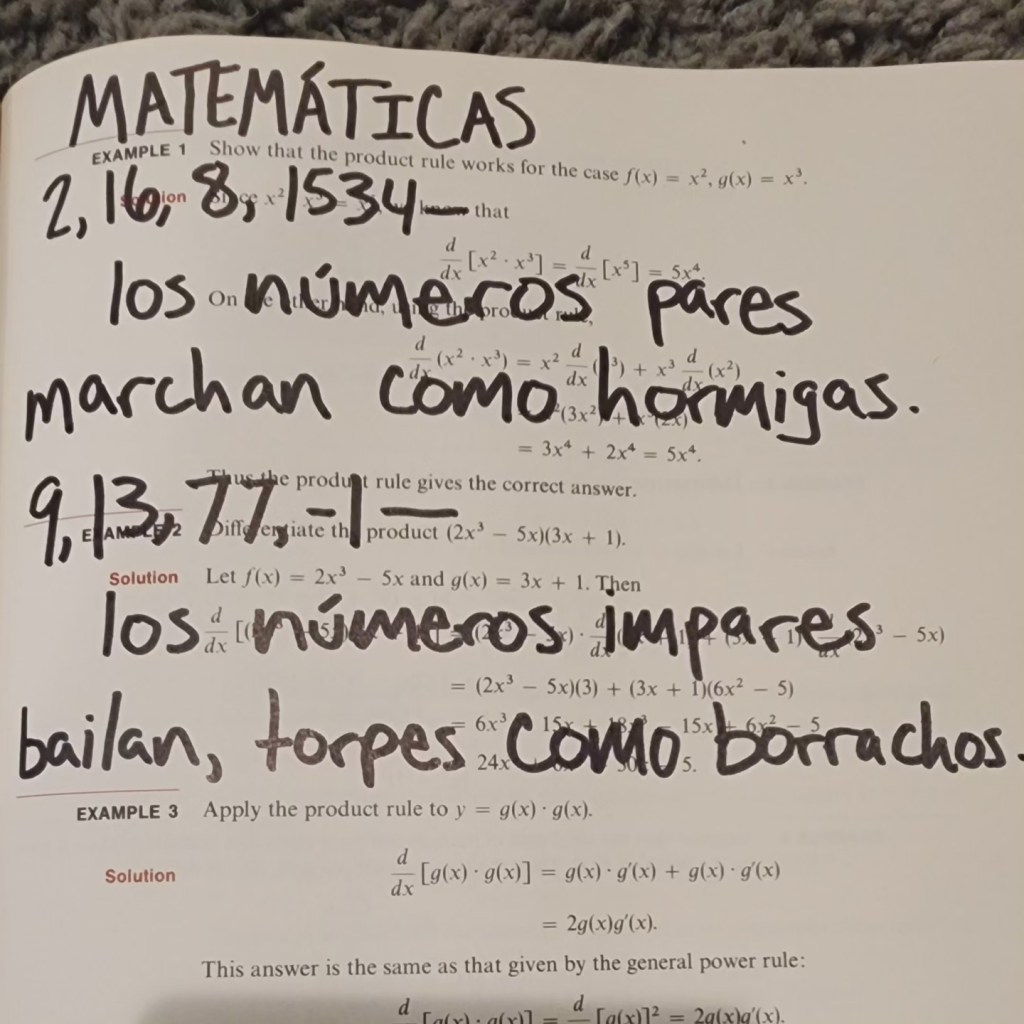 MATEMÁTICAS
EXAMPLE 1 Show that the product rule works for the case f(x) = x², g(x) = x³.
2, 16, 8, 1534—
that
d/dx [x² · x³] = d/dx [x⁵] = 5x⁴.
los números pares
On
d/dx (x² · x³) = x² d/dx (x³) + x³ d/dx (x²)
marchan como hormigas.
= 3x⁴ + 2x⁴ = 5x⁴.
Thus the product rule gives the correct answer.
9, 13, 77, -1 —
EXAMPLE 2 Differentiate the product (2x³ − 5x)(3x + 1).
Solution Let f(x) = 2x³ − 5x and g(x) = 3x + 1. Then
los números impares
= (2x³ − 5x)(3) + (3x + 1)(6x² − 5)
bailan, torpes como borrachos.
EXAMPLE 3 Apply the product rule to y = g(x) · g(x).
Solution d/dx [g(x) · g(x)] = g(x) · g′(x) + g(x) · g′(x)
= 2g(x)g′(x).
This answer is the same as that given by the general power rule:
d/dx [g(x) · g(x)] = d/dx [g(x)]² = 2g(x)g′(x).